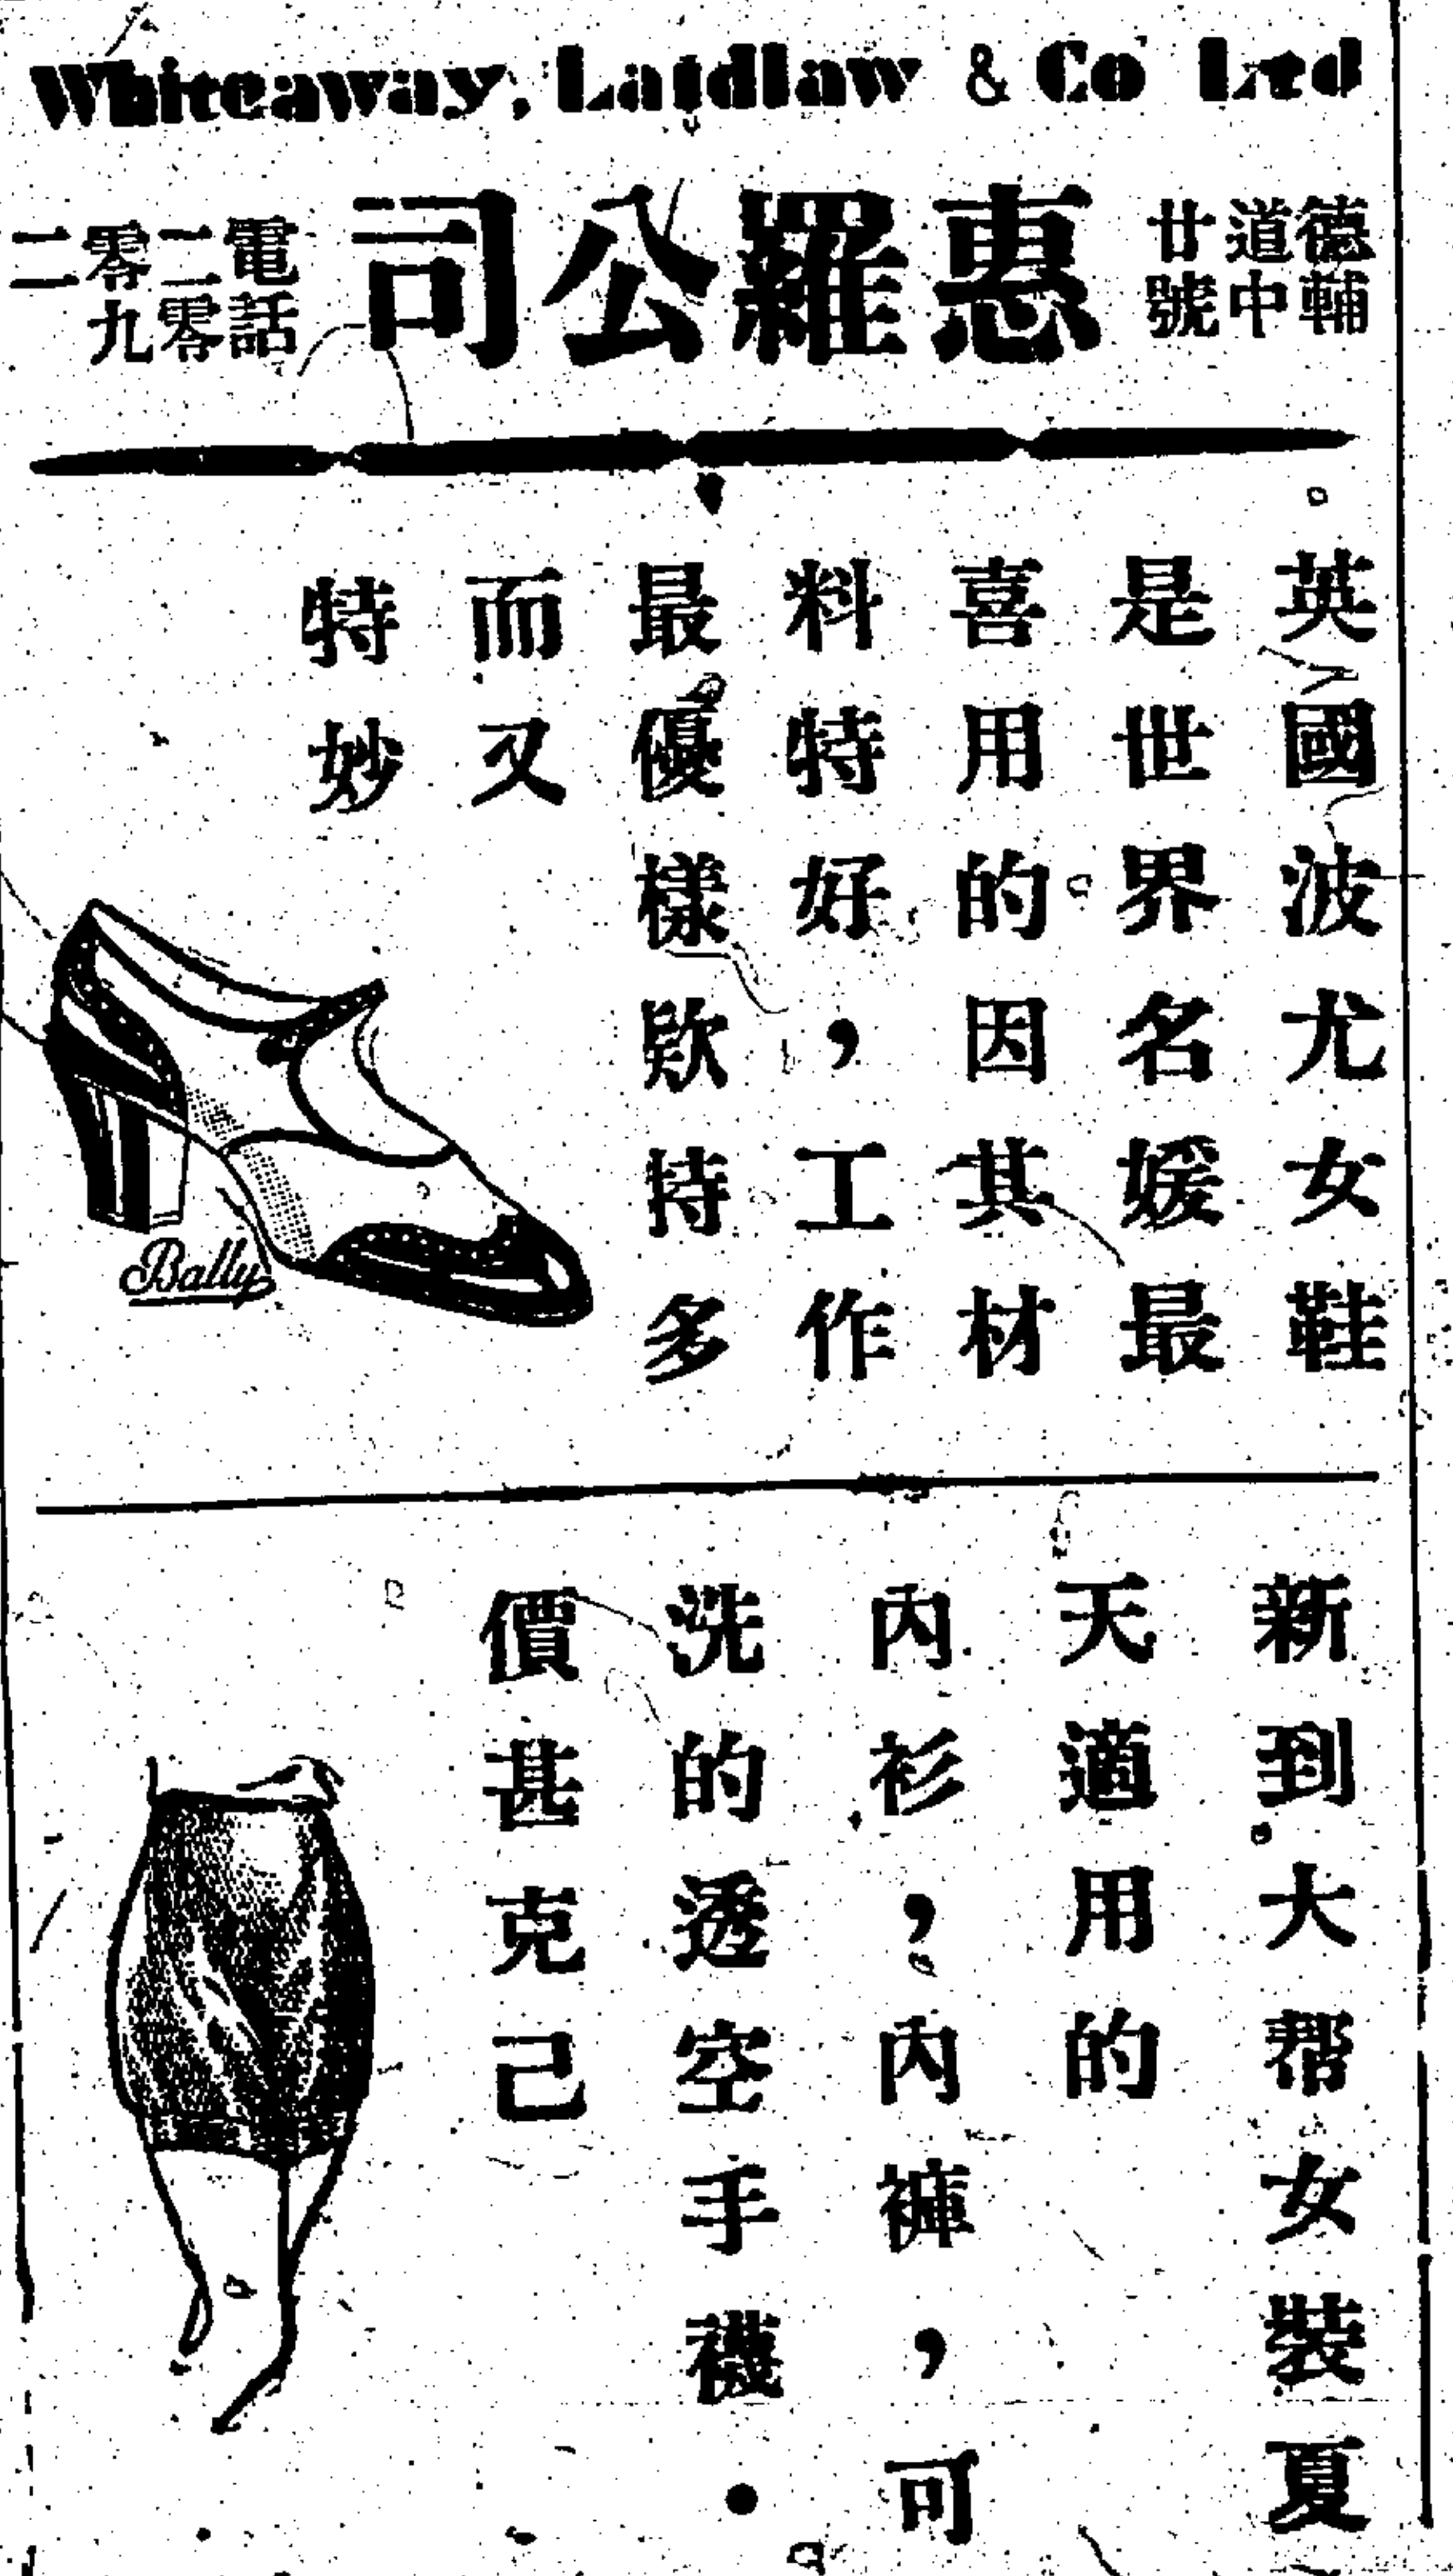 Whiteaway, Laidlaw & Co Ltd
惠羅公司
德輔
道中
廿號
電話
二零
零九
二
英國波尤女鞋
是世界名媛最
喜用的因其材
料特好，工作
最優樣欵持多
而又
特妙
Bally
新到大帮女裝夏
天適用的
內衫，內褲，可
洗的透空手襪．
價甚克己